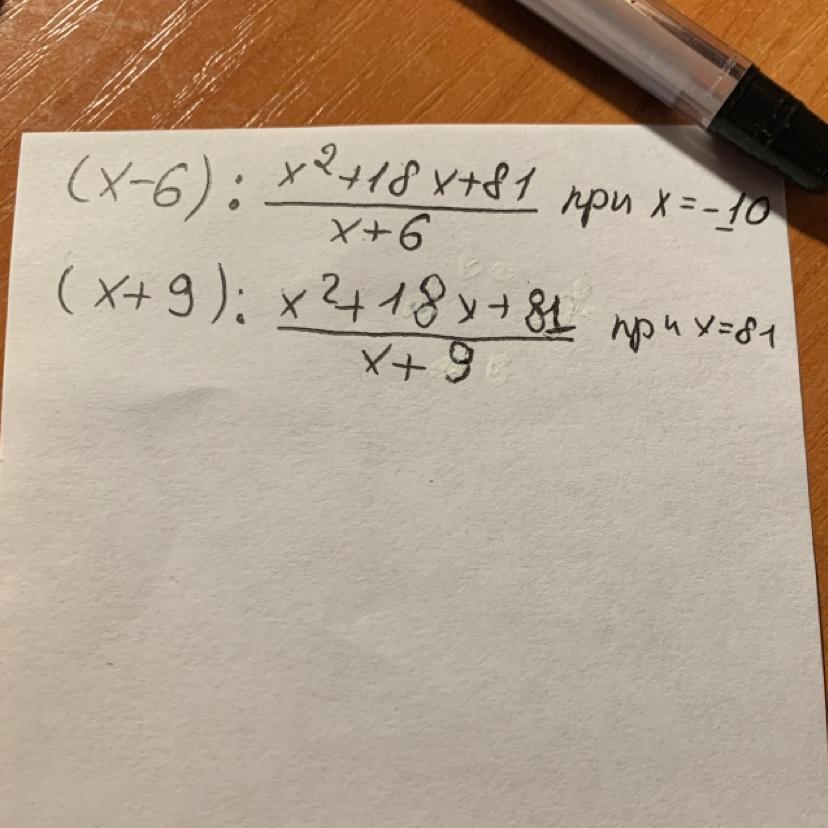 (x-6): \frac{x^2+18x+81}{x+6} при x=-10
(x+9): \frac{x^2+18x+81}{x+9} при x=81